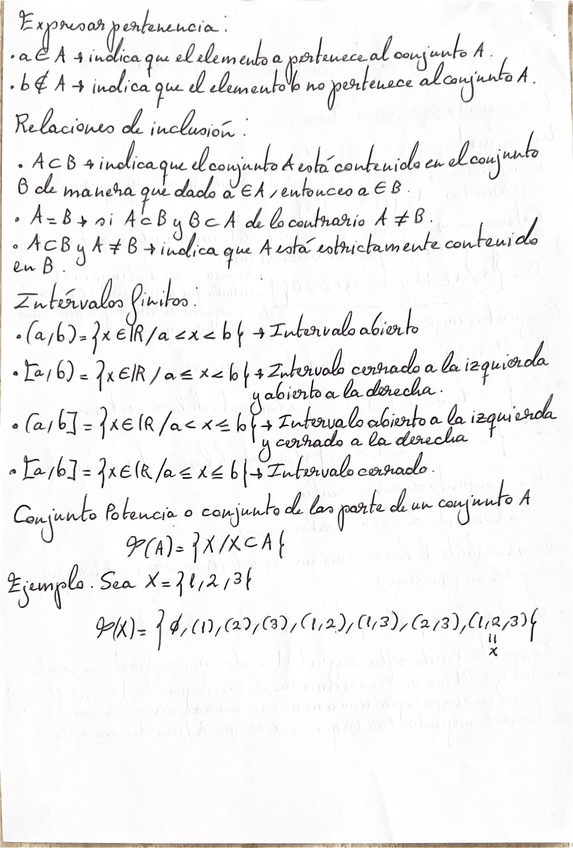 Expresar pertenencia:
· a ∈ A → indica que el elemento a pertenece al conjunto A.
· b ∉ A → indica que el elemento b no pertenece al conjunto A.
Relaciones de inclusión:
· A ⊂ B → indica que el conjunto A está contenido en el conjunto
B de manera que dado a ∈ A, entonces a ∈ B.
· A = B → si A ⊂ B y B ⊂ A de lo contrario A ≠ B.
· A ⊂ B y A ≠ B → indica que A está estrictamente contenido
en B.
Intérvalos finitos:
· (a,b) = {x ∈ ℝ / a < x < b} → Intervalo abierto
· [a,b) = {x ∈ ℝ / a ≤ x < b} → Intervalo cerrado a la izquierda
y abierto a la derecha.
· (a,b] = {x ∈ ℝ / a < x ≤ b} → Intervalo abierto a la izquierda
y cerrado a la derecha
· [a,b] = {x ∈ ℝ / a ≤ x ≤ b} → Intervalo cerrado.
Conjunto Potencia o conjunto de las parte de un conjunto A
𝒫(A) = {X / X ⊂ A}
Ejemplo. Sea X = {1, 2, 3}
𝒫(X) = {∅, (1), (2), (3), (1,2), (1,3), (2,3), (1,2,3)}
=
x